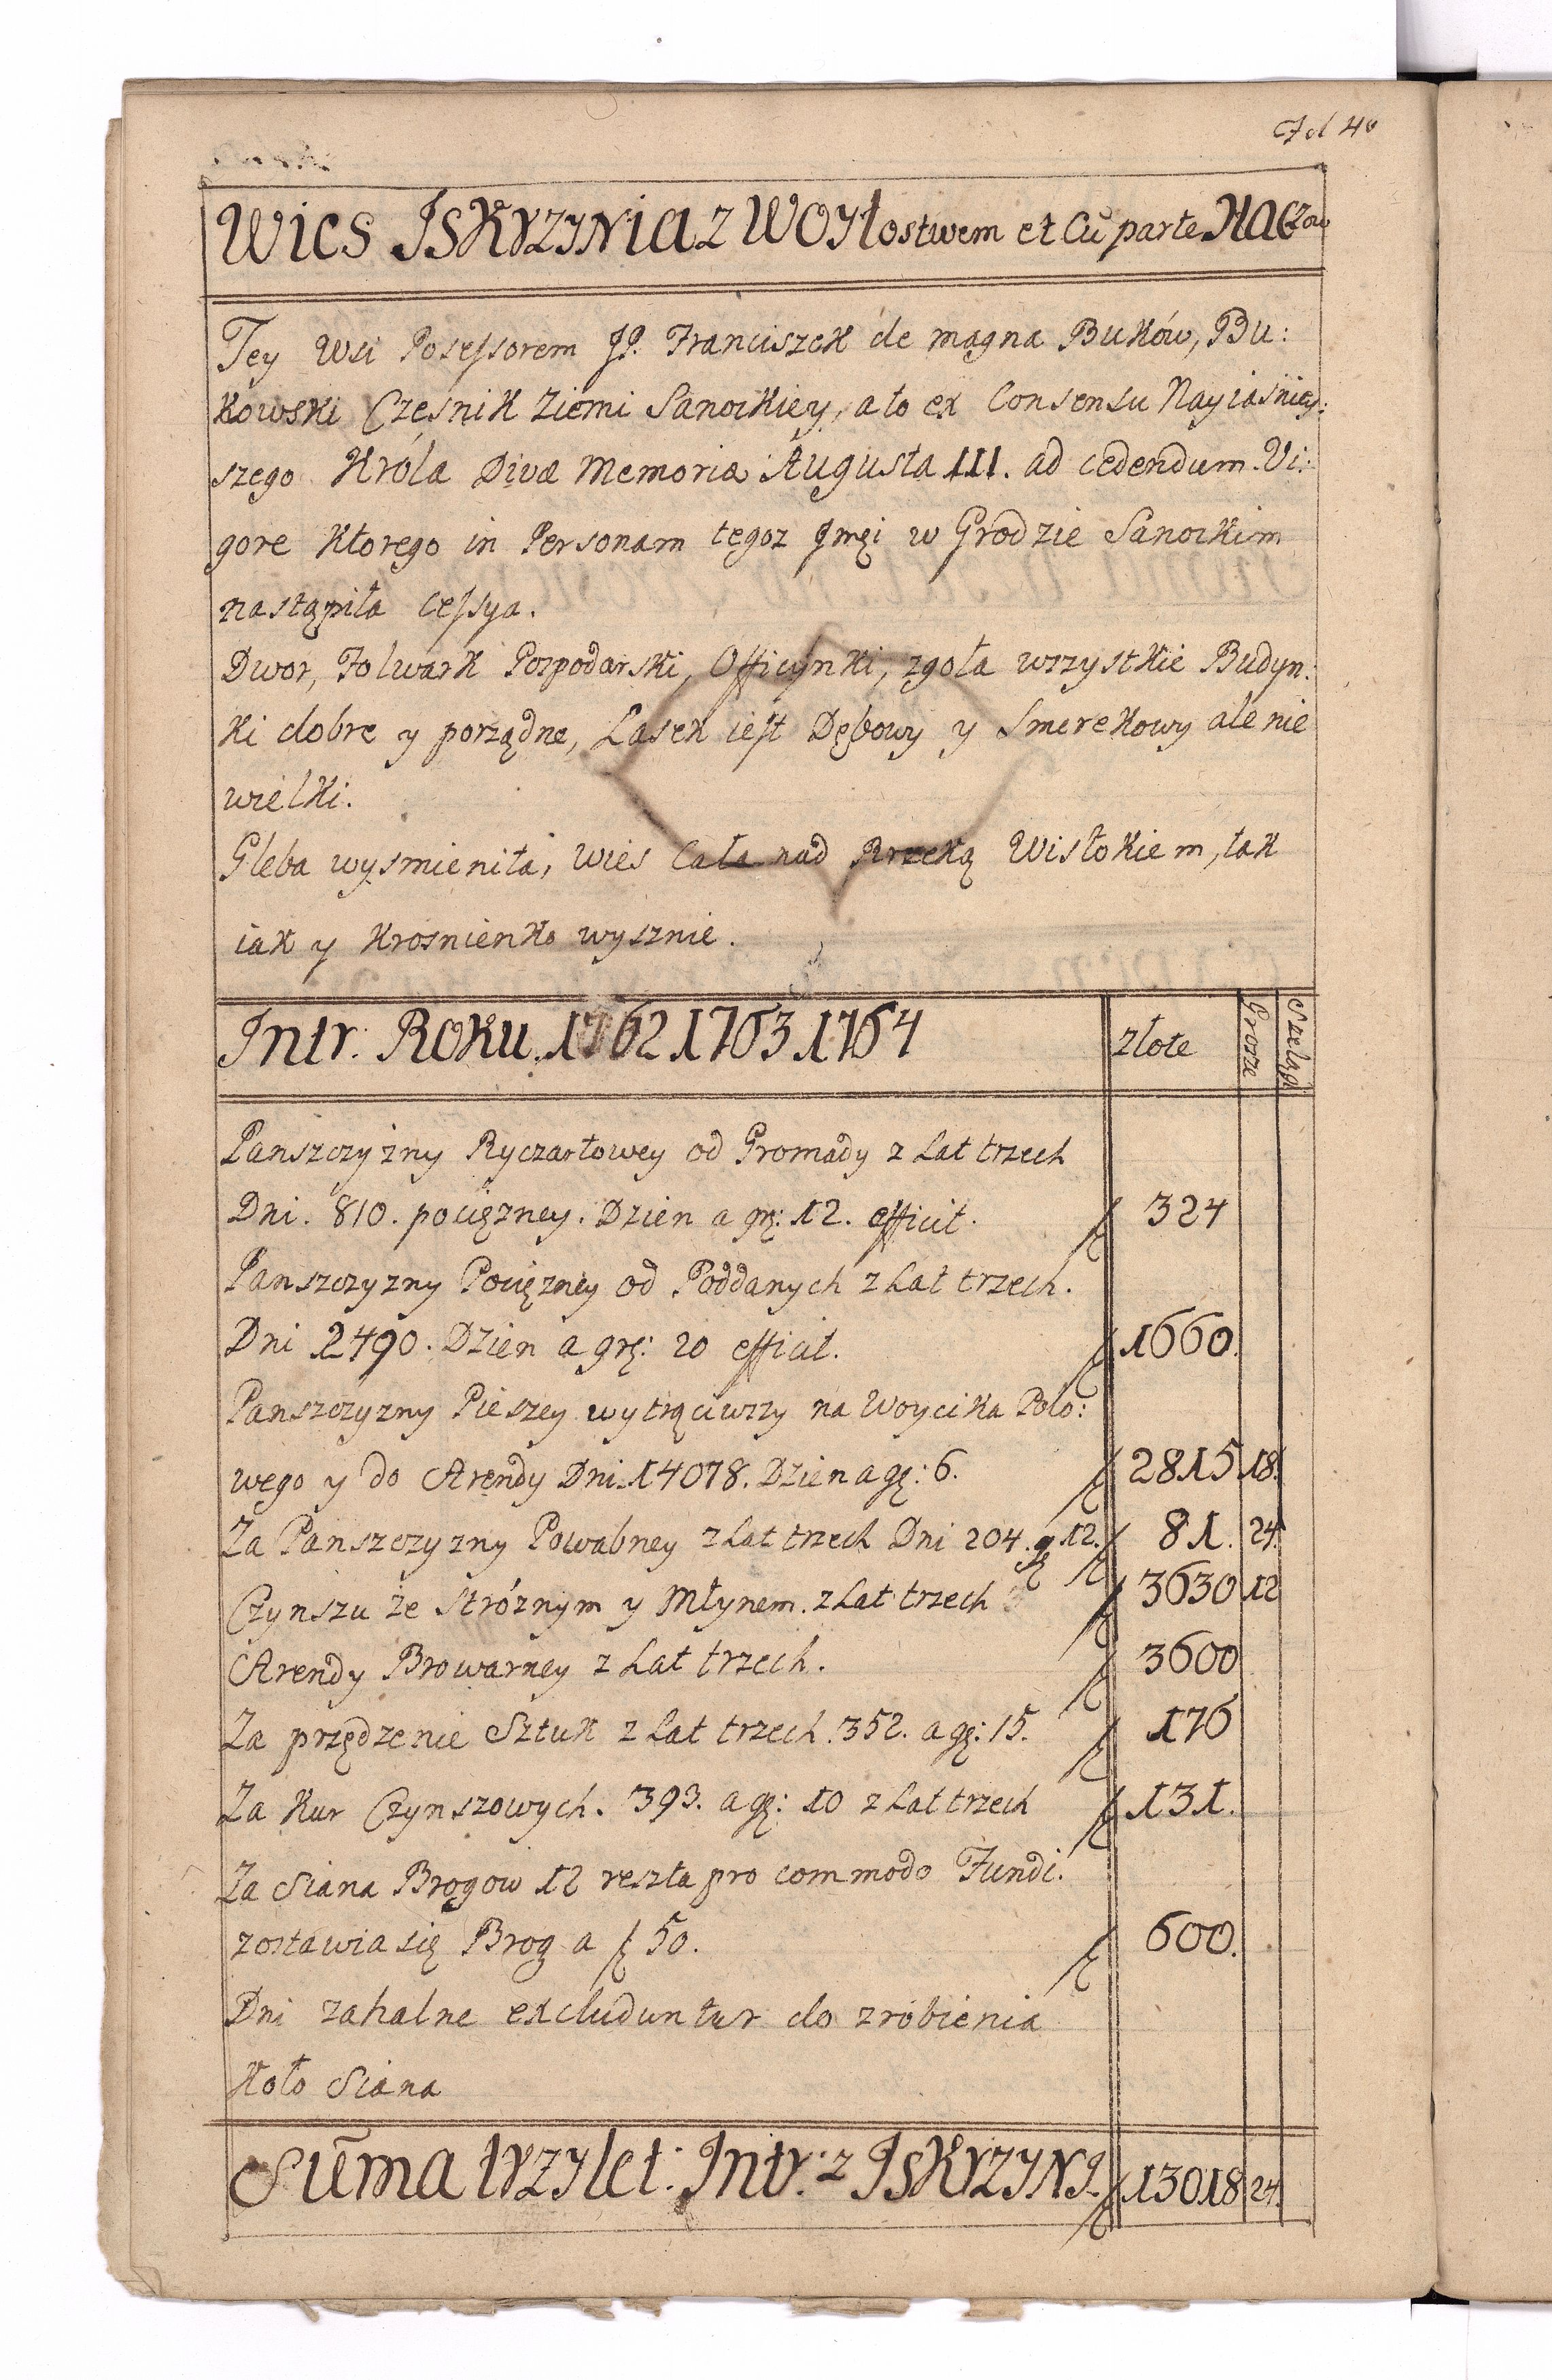 Fol 40
Wies JsKrzynia z Woytostwem et Cũ parte Haczow
Tey Wsi Posessorem JP. Franciszek de magna Buków, Bu:
kowski Cześnik Ziemi Sanockiey, a to ex Consensu Nayiaśniey:
szego Króla Divæ Memoriæ Augusta III. ad cedendum. Vi:
gore Ktorego in Personam tegoz Jmęi w Grodzie Sanockim
nastąpiła Cessya.
Dwor, Folwark Gospodarski, Officynki, zgoła wszystkie Budyn:
ki dobre y porządne, Lasek iest Dębowy y Smerekowy ale nie
wielki.
Gleba wysmienita, Wies Cała nad Rzeką Wisłokiem, tak
iak y Krosnienko wysznie.
Intr: Roku. 1762 1763 1764 złote Grosze Szeląg
Panszczyzny Ryczartowey od Gromady z Lat trzech
Dni. 810. pociężney. Dzien a grę: 12. efficit. f 324
Panszczyzny Pociężney od Poddanych z Lat trzech.
Dni 2490. Dzien a grę: 20 efficit. f 1660.
Panszczyzny Pieszey wytrąciwszy na Woycika Polo:
wego y do Arendy Dni. 14078. Dzien a gę: 6. f 2815 18.
Za Panszczyzny Powabney z Lat trzech Dni 204. gę 12. f 81. 24.
Czynszu ze Stróżnym y Młynem. z Lat trzech f 3630 12
Arendy Browarney z Lat trzech. f 3600
Za przędzenie Sztuk z Lat trzech. 352. a gę: 15. f 176
Za Kur Czynszowych. 393. a gę: 10 z Lat trzech f 131.
Za Siana Brogow 12 reszta pro commodo Fundi.
zostawia się Brog a f 50. f 600.
Dni zahalne excluduntur do zrobienia
Koło Siana
Sum̃a trzylet: Intr: z JsKrzyni. f 13018 24.